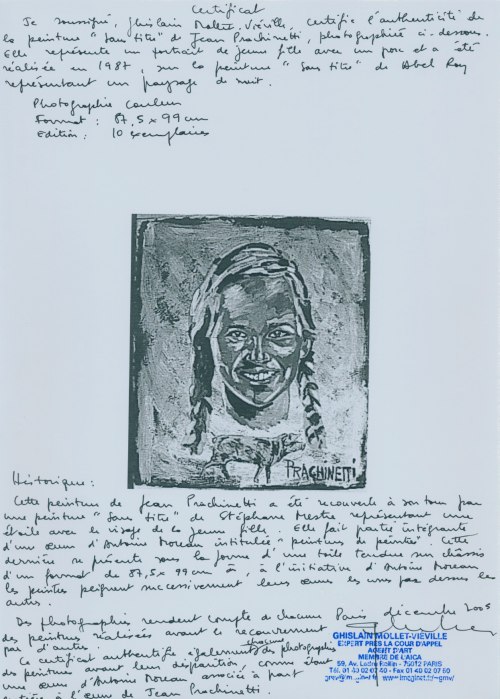 Certificat
Je soussigné, Ghislain Mollet-Viéville, certifie l'authenticité de
la peinture "Sans titre" de Jean Prachinetti, photographiée ci-dessous.
Elle représente un portrait de jeune fille avec un porc et a été
réalisée en 1987, sur la peinture "Sans titre" de Abel Roy
représentant un paysage de nuit.
Photographie couleur
Format : 87,5 x 99 cm
Edition : 10 exemplaires
PRACHINETTI
Historique :
Cette peinture de Jean Prachinetti a été recouverte à son tour par
une peinture "Sans titre" de Stéphane Mestre représentant une
étoile avec le visage de la jeune fille. Elle fait partie intégrante
d'un œuvre d'Antoine Moreau intitulée "peinture de peintre". Cette
dernière se présente sous la forme d'une toile tendue sur châssis
d'un format de 87,5 x 99 cm où, à l'initiative d'Antoine Moreau
les peintres peignent successivement leurs œuvres les unes par dessus les
autres.
Des photographies rendent compte de chacune
des peintures réalisées avant le recouvrement
par d'autres.
Ce certificat authentifie également chacune des photographies
des peintures avant leur disparition, comme étant
une œuvre d'Antoine Moreau associée à part
entière à l'œuvre de Jean Prachinetti.
Paris, décembre 2005
GHISLAIN MOLLET-VIÉVILLE
EXPERT PRÈS LA COUR D'APPEL
AGENT D'ART
MEMBRE DE L'AICA
59, Av. Ledru Rollin - 75012 PARIS
Tél. 01 40 02 07 40 - Fax 01 40 02 07 50
www.imaginet.fr/~gmv/